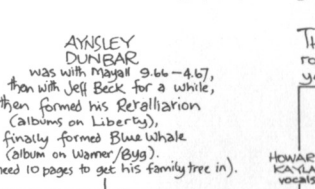 AYNSLEY
DUNBAR
was with Mayall 9.66–4.67,
then with Jeff Beck for a while,
then formed his Retaliation
(albums on Liberty),
finally formed Blue Whale
(album on Warner/Byg).
need 10 pages to get his family tree in).
HOWAR
KAYLA
vocals